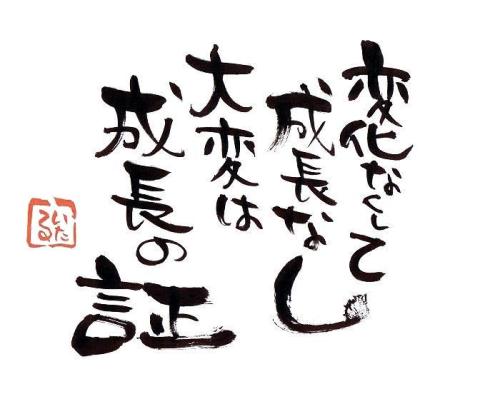 変化なくして
成長なし
大変は
成長の
証
いたてる